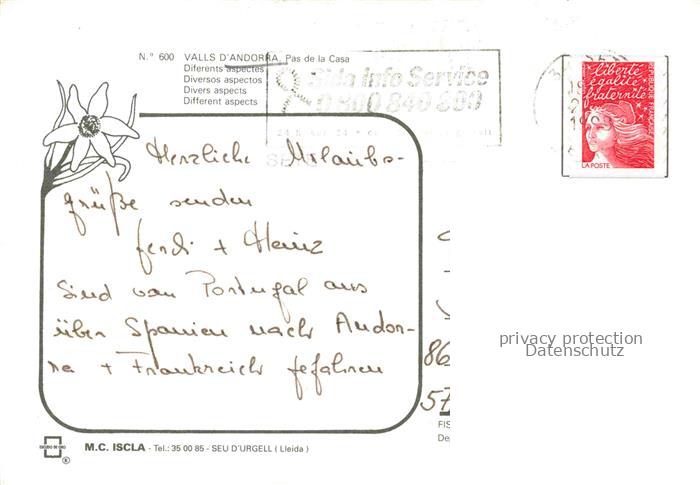 N.° 600 VALLS D'ANDORRA, Pas de la Casa
Diferents aspectes
Diversos aspectos
Divers aspects
Different aspects
Sida Info Service
0 800 840 800
liberté
égalité
fraternité
LA POSTE
Herzliche Urlaubs-
grüße senden
Ferdi + Heinz
Sind von Portugal aus
über Spanien nach Andor-
ra + Frankreich gefahren
86
57
privacy protection
Datenschutz
FIS
De
ESCUDO DE ORO
®
M.C. ISCLA - Tel.: 35 00 85 - SEU D'URGELL ( Lleida )